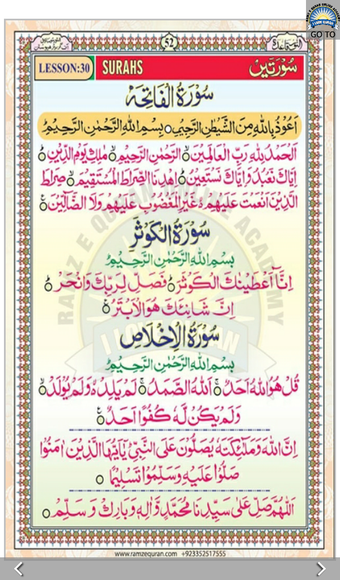 GO TO
52
LESSON:30 SURAHS سُوْرَتَيْں
سُوْرَةُ الْفَاتِحَہ
اَعُوْذُ بِاللّٰهِ مِنَ الشَّيْطٰنِ الرَّجِيْمِ ۝ بِسْمِ اللّٰهِ الرَّحْمٰنِ الرَّحِيْمِ
اَلْحَمْدُ لِلّٰهِ رَبِّ الْعَالَمِيْنَ ۝ الرَّحْمٰنِ الرَّحِيْمِ ۝ مٰلِكِ يَوْمِ الدِّيْنِ ۝
اِيَّاكَ نَعْبُدُ وَاِيَّاكَ نَسْتَعِيْنُ ۝ اِهْدِنَا الصِّرَاطَ الْمُسْتَقِيْمَ ۝ صِرَاطَ
الَّذِيْنَ اَنْعَمْتَ عَلَيْهِمْ ۝ غَيْرِ الْمَغْضُوْبِ عَلَيْهِمْ وَلَا الضَّآلِّيْنَ ۝
سُوْرَةُ الْكَوْثَر
بِسْمِ اللّٰهِ الرَّحْمٰنِ الرَّحِيْمِ
اِنَّآ اَعْطَيْنٰكَ الْكَوْثَرَ ۝ فَصَلِّ لِرَبِّكَ وَانْحَرْ ۝
اِنَّ شَانِئَكَ هُوَ الْاَبْتَرُ ۝
سُوْرَةُ الْاِخْلَاص
بِسْمِ اللّٰهِ الرَّحْمٰنِ الرَّحِيْمِ
قُلْ هُوَ اللّٰهُ اَحَدٌ ۝ اَللّٰهُ الصَّمَدُ ۝ لَمْ يَلِدْ ۝ وَلَمْ يُوْلَدْ ۝
وَلَمْ يَكُنْ لَّهٗ كُفُوًا اَحَدٌ ۝
اِنَّ اللّٰهَ وَمَلٰٓئِكَتَهٗ يُصَلُّوْنَ عَلَى النَّبِيِّ يٰٓاَيُّهَا الَّذِيْنَ اٰمَنُوْا
صَلُّوْا عَلَيْهِ وَسَلِّمُوْا تَسْلِيْمًا ۝
اَللّٰهُمَّ صَلِّ عَلٰى سَيِّدِنَا مُحَمَّدٍ وَّاٰلِهٖ وَبَارِكْ وَسَلِّمْ ۝
www.ramzequran.com +923352517555